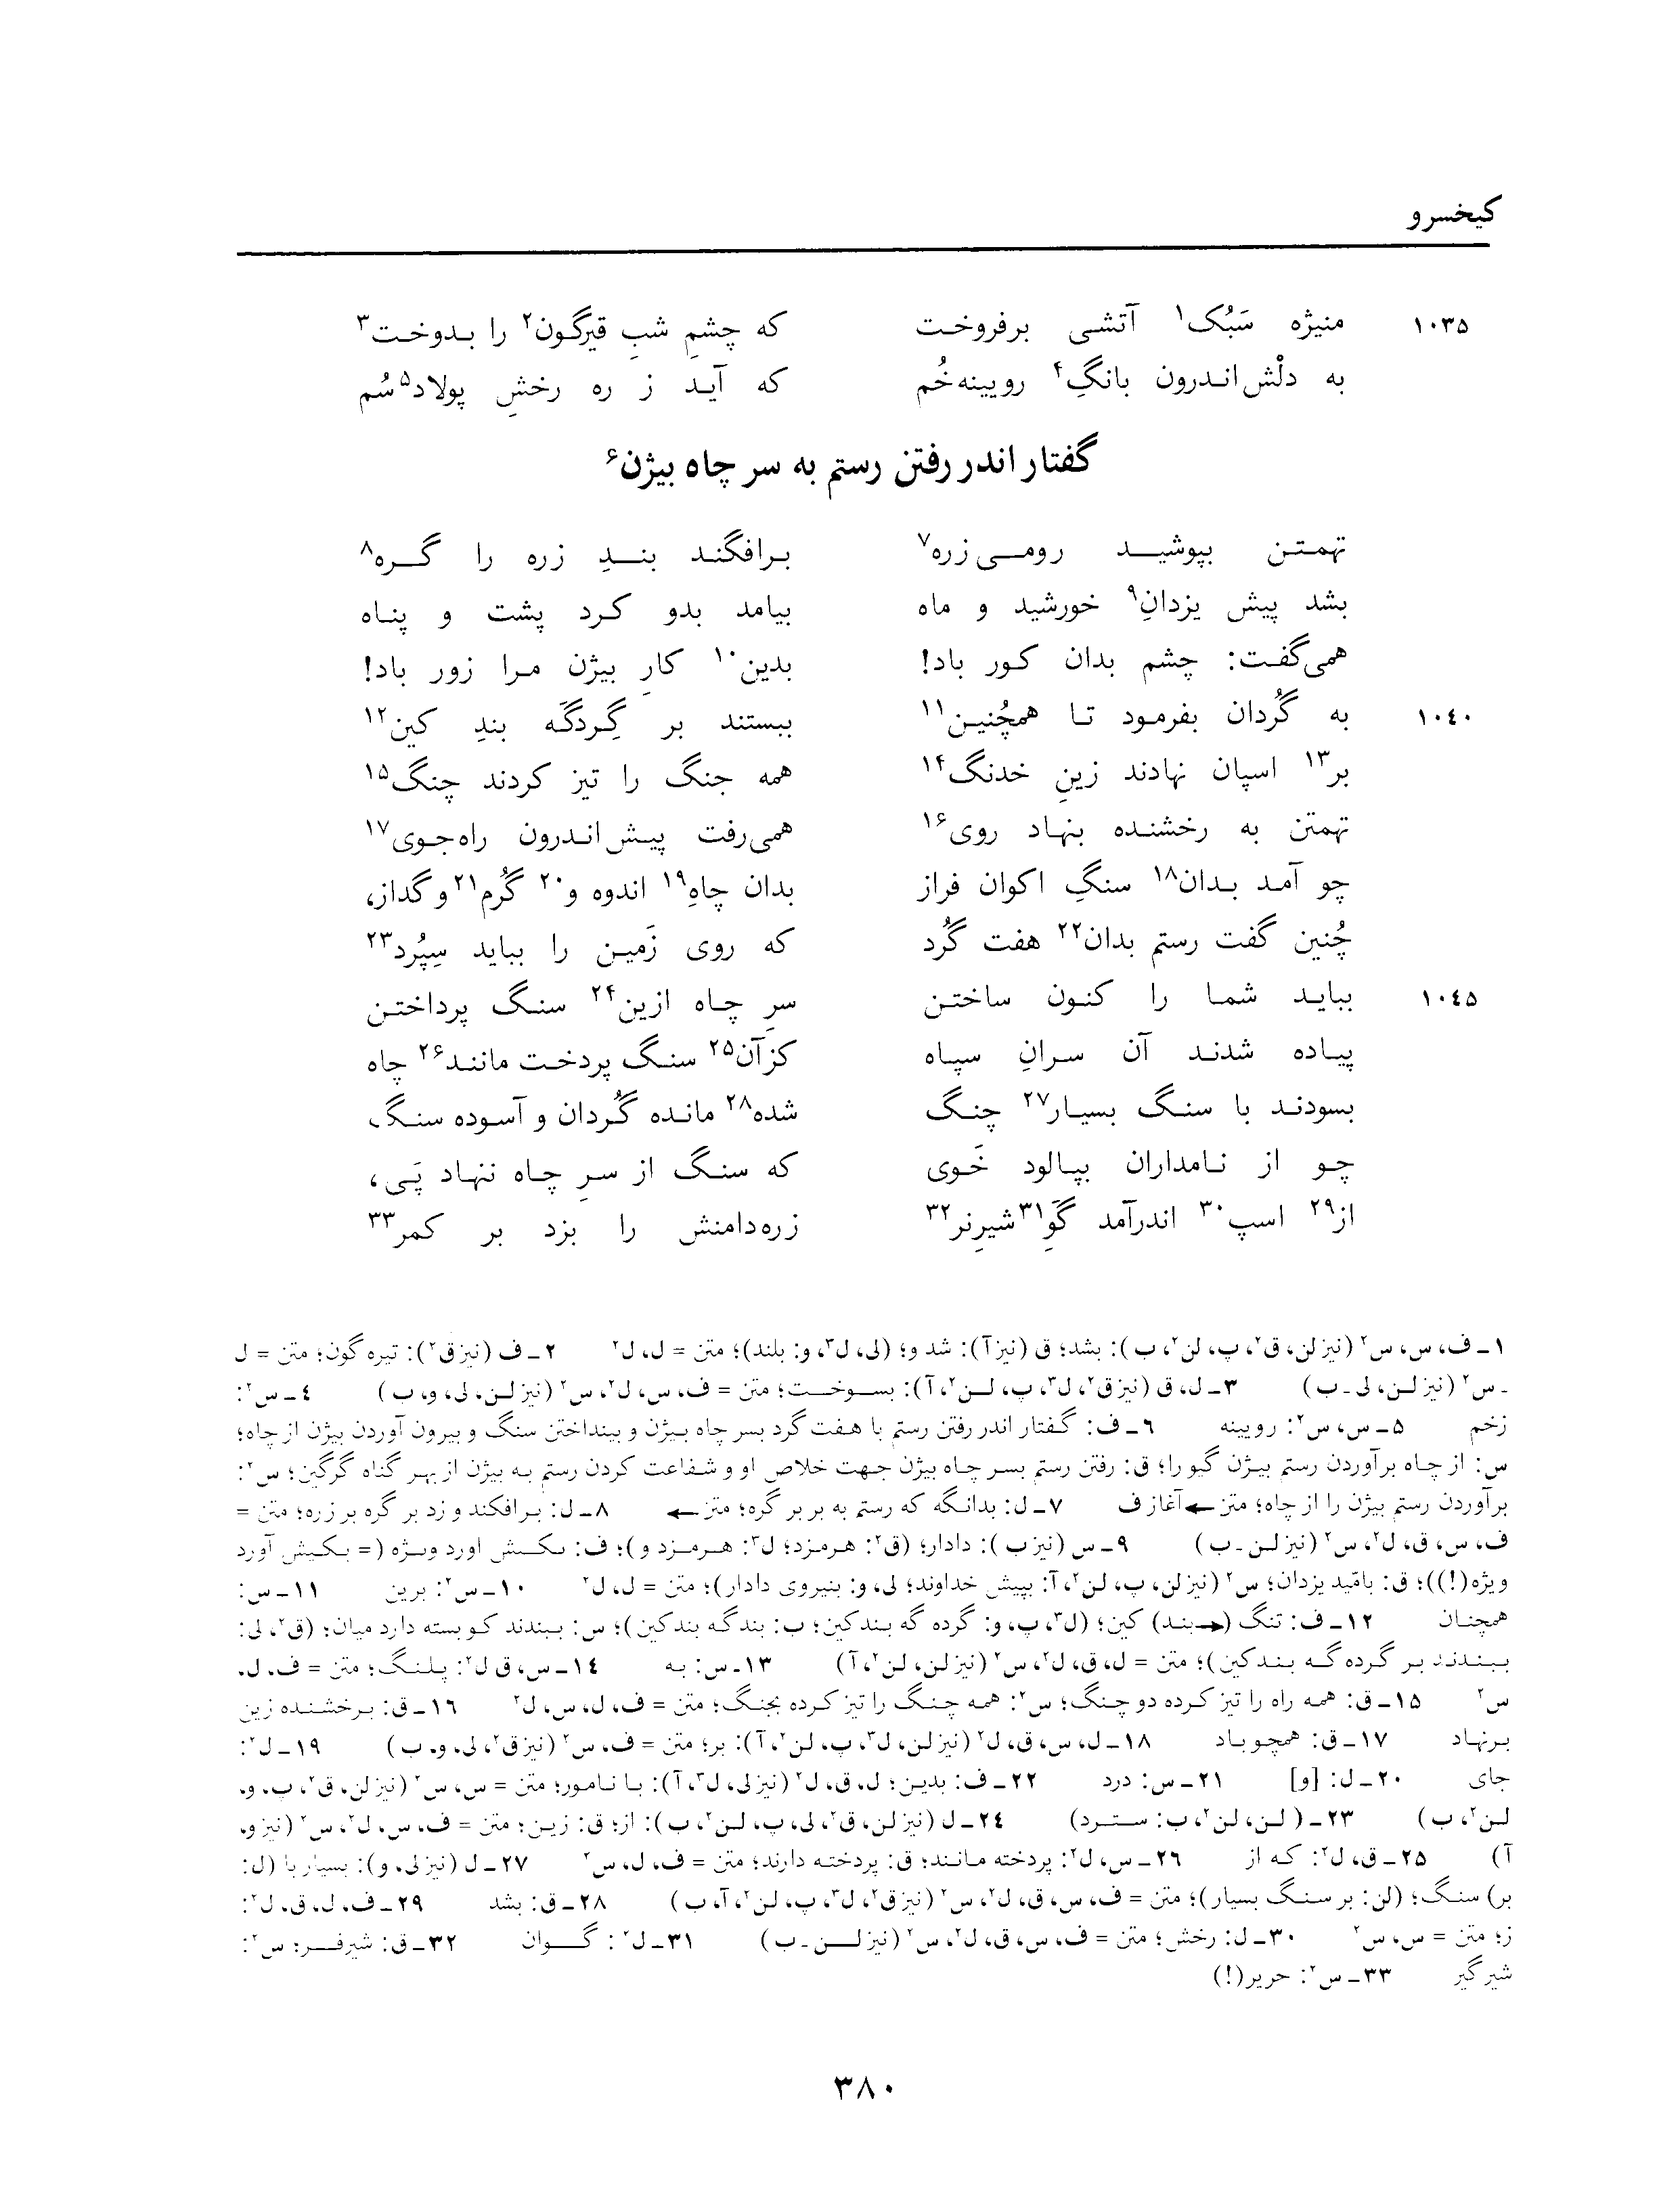 کیخسرو
۱۰۳۵ منیژه سَبُک۱ آتشی برفروخت که چشمِ شبِ قیرگون۲ را بدوخت۳
به دلْش اندرون بانگِ۴ رویینه خُم که آید ز ره رخشِ پولاد۵ سُم
گفتار اندر رفتن رستم به سر چاه بیژن۶
تهمتن بپوشید رومی زره۷ برافگند بندِ زره را گره۸
بشد پیش یزدانِ۹ خورشید و ماه بیامد بدو کرد پشت و پناه
همی‌گفت: چشم بدان کور باد! بدین۱۰ کارِ بیژن مرا زور باد!
۱۰٤۰ به گُردان بفرمود تا همچُنین۱۱ ببستند بر گِردگَه بندِ کین۱۲
بر۱۳ اسپان نهادند زینِ خدنگ۱۴ همه جنگ را تیز کردند چنگ۱۵
تهمتن به رخشنده بنهاد روی۱۶ همی‌رفت پیش اندرون راه‌جوی۱۷
چو آمد بدان۱۸ سنگِ اکوان فراز بدان چاهِ۱۹ اندوه و۲۰ گُرم۲۱ و گداز،
چُنین گفت رستم بدان۲۲ هفت گُرد که روی زَمین را بباید سِپُرد۲۳
۱۰٤۵ بباید شما را کنون ساختن سرِ چاه ازین۲۴ سنگ پرداختن
پیاده شدند آن سرانِ سپاه کزآن۲۵ سنگ پردخت مانند۲۶ چاه
بسودند با سنگ بسیار۲۷ چنگ شده۲۸ مانده گُردان و آسوده سنگ،
چو از نامداران بپالود خَوی که سنگ از سرِ چاه ننهاد پَی،
از۲۹ اسپ۳۰ اندرآمد گَوِ۳۱ شیرِنر۳۲ زره‌دامنش را بزد بر کمر۳۳
۱ـ ف، س، س۲ (نیز لن، ق۲، پ، لن۲، ب): بشد؛ ق (نیز آ): شد و؛ (لی، ل۳، و: بلند)؛ متن = ل، ل۲ ۲ـ ف (نیز ق۲): تیره گون؛ متن = ل
ـ س۲ (نیز لن، لی ـ ب) ۳ـ ل، ق (نیز ق۲، ل۳، پ، لن۲، آ): بسوخت؛ متن = ف، س، ل۲، س۲ (نیز لن، لی، و، ب) ٤ـ س۲:
زخم ۵ـ س، س۲: رویینه ٦ـ ف: گفتار اندر رفتن رستم با هفت گرد بسر چاه بیژن و بینداختن سنگ و بیرون آوردن بیژن از چاه؛
س: از چاه برآوردن رستم بیژن گیو را؛ ق: رفتن رستم بسر چاه بیژن جهت خلاص او و شفاعت کردن رستم به بیژن از بهر گناه گرگین؛ س۲:
برآوردن رستم بیژن را از چاه؛ متن ← آغاز ف ۷ـ ل: بدانگه که رستم به بر بر گره؛ متن ← ۸ـ ل: برافکند و زد بر گره بر زره؛ متن =
ف، س، ق، ل۲، س۲ (نیز لن ـ ب) ۹ـ س (نیز ب): دادار؛ (ق۲: هرمزد؛ ل۳: هرمزد و)؛ ف: بکیش اورد ویژه (= بکیش آورد
ویژه(!))؛ ق: بامّید یزدان؛ س۲ (نیز لن، پ، لن۲، آ: بپیش خداوند؛ لی، و: بنیروی دادار)؛ متن = ل، ل۲ ۱۰ـ س۲: برین ۱۱ـ س:
همچنان ۱۲ـ ف: تنگ (← بند) کین؛ (ل۳، پ، و: گرده گه بند کین؛ ب: بندگه بند کین)؛ س: ببندند کو بسته دارد میان؛ (ق۲، لی:
ببندند بر گرده گه بند کین)؛ متن = ل، ق، ل۲، س۲ (نیز لن، لن۲، آ) ۱۳ـ س: به ۱٤ـ س، ق ل۲: پلنگ؛ متن = ف، ل،
س۲ ۱۵ـ ق: همه راه را تیز کرده دو چنگ؛ س۲: همه چنگ را تیز کرده بجنگ؛ متن = ف، ل، س، ل۲ ۱٦ـ ق: برخشنده زین
برنهاد ۱۷ـ ق: همچو باد ۱۸ـ ل، س، ق، ل۲ (نیز لن، ل۳، پ، لن۲، آ): بر؛ متن = ف، س۲ (نیز ق۲، لی، و، ب) ۱۹ـ ل۲:
جای ۲۰ـ ل: [و] ۲۱ـ س: درد ۲۲ـ ف: بدین؛ ل، ق، ل۲ (نیز لی، ل۳، آ): با نامور؛ متن = س، س۲ (نیز لن، ق۲، پ، و،
لن۲، ب) ۲۳ـ ( لن، لن۲، ب: سترد) ۲٤ـ ل (نیز لن، ق۲، لی، پ، لن۲، ب): از؛ ق: زین؛ متن = ف، س، ل۲، س۲ (نیز و،
آ) ۲۵ـ ق، ل۲: که از ۲٦ـ س، ل۲: پردخته مانند؛ ق: پردخته دارند؛ متن = ف، ل، س۲ ۲۷ـ ل (نیز لی، و): بسیار با (ل:
بر) سنگ؛ (لن: بر سنگ بسیار)؛ متن = ف، س، ق، ل۲، س۲ (نیز ق۲، ل۳، پ، لن۲، آ، ب) ۲۸ـ ق: بشد ۲۹ـ ف، ل، ق، ل۲:
ز؛ متن = س، س۲ ۳۰ـ ل: رخش؛ متن = ف، س، ق، ل۲، س۲ (نیز لن ـ ب) ۳۱ـ ل۲: گوان ۳۲ـ ق: شیرفر؛ س۲:
شیرگیر ۳۳ـ س۲: حریر(!)
۳۸۰